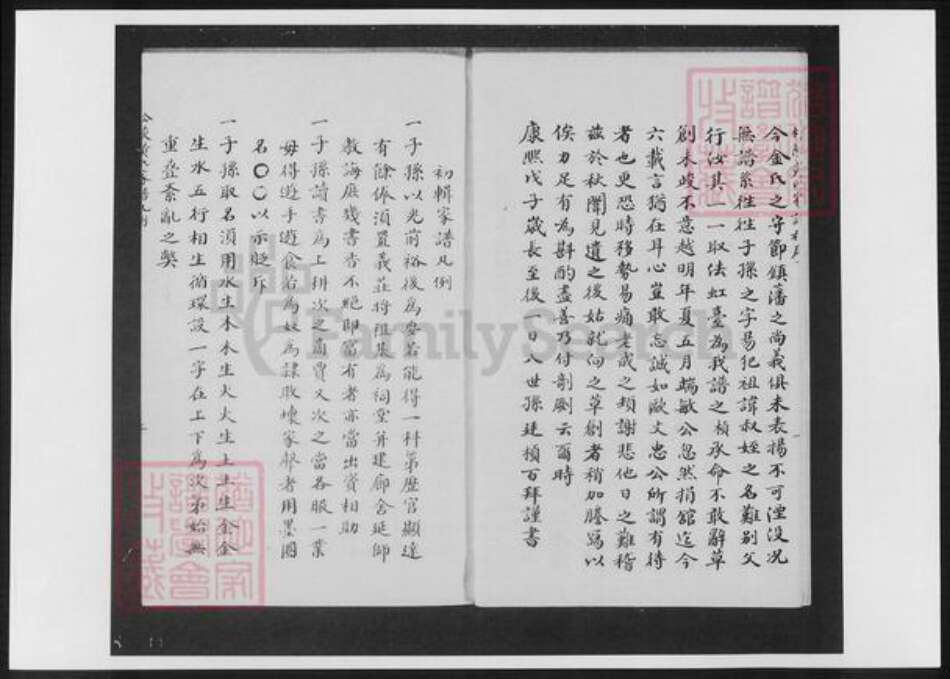 今金氏之守節鎮藩之尚義俱未表揚不可湮没况
無譜系徃徃子孫之字易犯祖諱叔姪之名難别父
行汝其一一取法虹臺為我譜之楨承命不敢辭草
創未峻不意越明年夏五月端敏公忽然捐舘迄今
六載言猶在耳心豈敢忘誠如歐文忠公所謂有待
者也更恐時移勢易痛老成之頹謝悲他日之難稽
兹於秋闈見遺之後姑就向之草創者稍加謄寫以
俟力足有為斟酌盡善乃付剞劂云爾時
康熙戊子嵗長至後一日八世孫廷楨百拜謹書
初輯家譜凡例
一子孫以光前裕後為安若能得一科第歷官顯達
有餘俸須置義莊将祖基為祠堂并建廊舍延師
教誨庶幾書香不絶即富有者亦當出資相助
一子孫讀書為上耕次之商賈又次之當各服一業
毋得逰手逰食若為奴為隷敗壊家聲者用墨圈
名〇〇以示貶斥
一子孫取名須用水生木木生火火生土土生金金
生水五行相生循環設一字在上下為次第始無
重叠紊亂之獘
FamilySearch